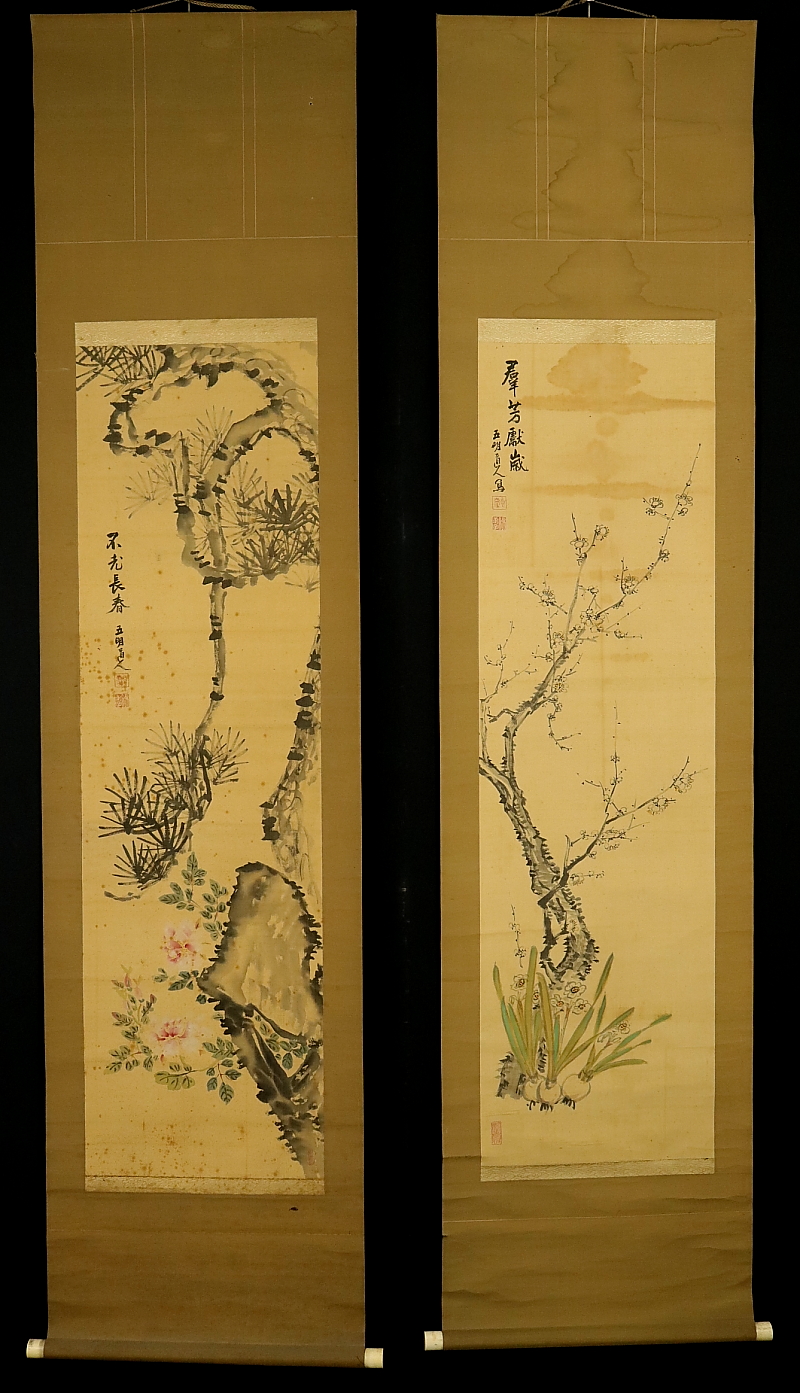 不老長春
五明道人
羣芳獻歲
五明道人寫